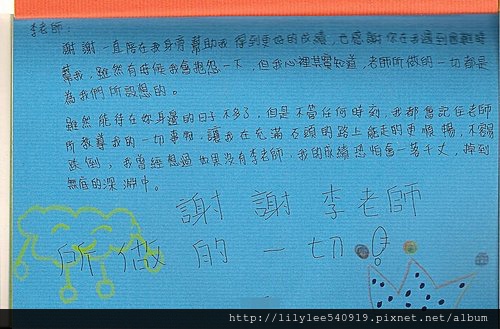 李老師：
謝謝一直陪在我身旁幫助我得到更好的成績，也感謝你在我遇到困難時
幫我，雖然有時候我會抱怨一下，但我心裡其實知道，老師所做的一切都是
為我們所設想的。
雖然能待在妳身邊的日子不多了，但是不管任何時刻，我都會記住老師
所教導我的一切事物，讓我在充滿石頭的路上能走的更順暢，不容易
跌倒，我曾經想過如果沒有李老師，我的成績恐怕會一落千丈，掉到
無底的深淵中。
謝謝李老師
所做的一切!
http://lilylee540919.pixnet.net/album